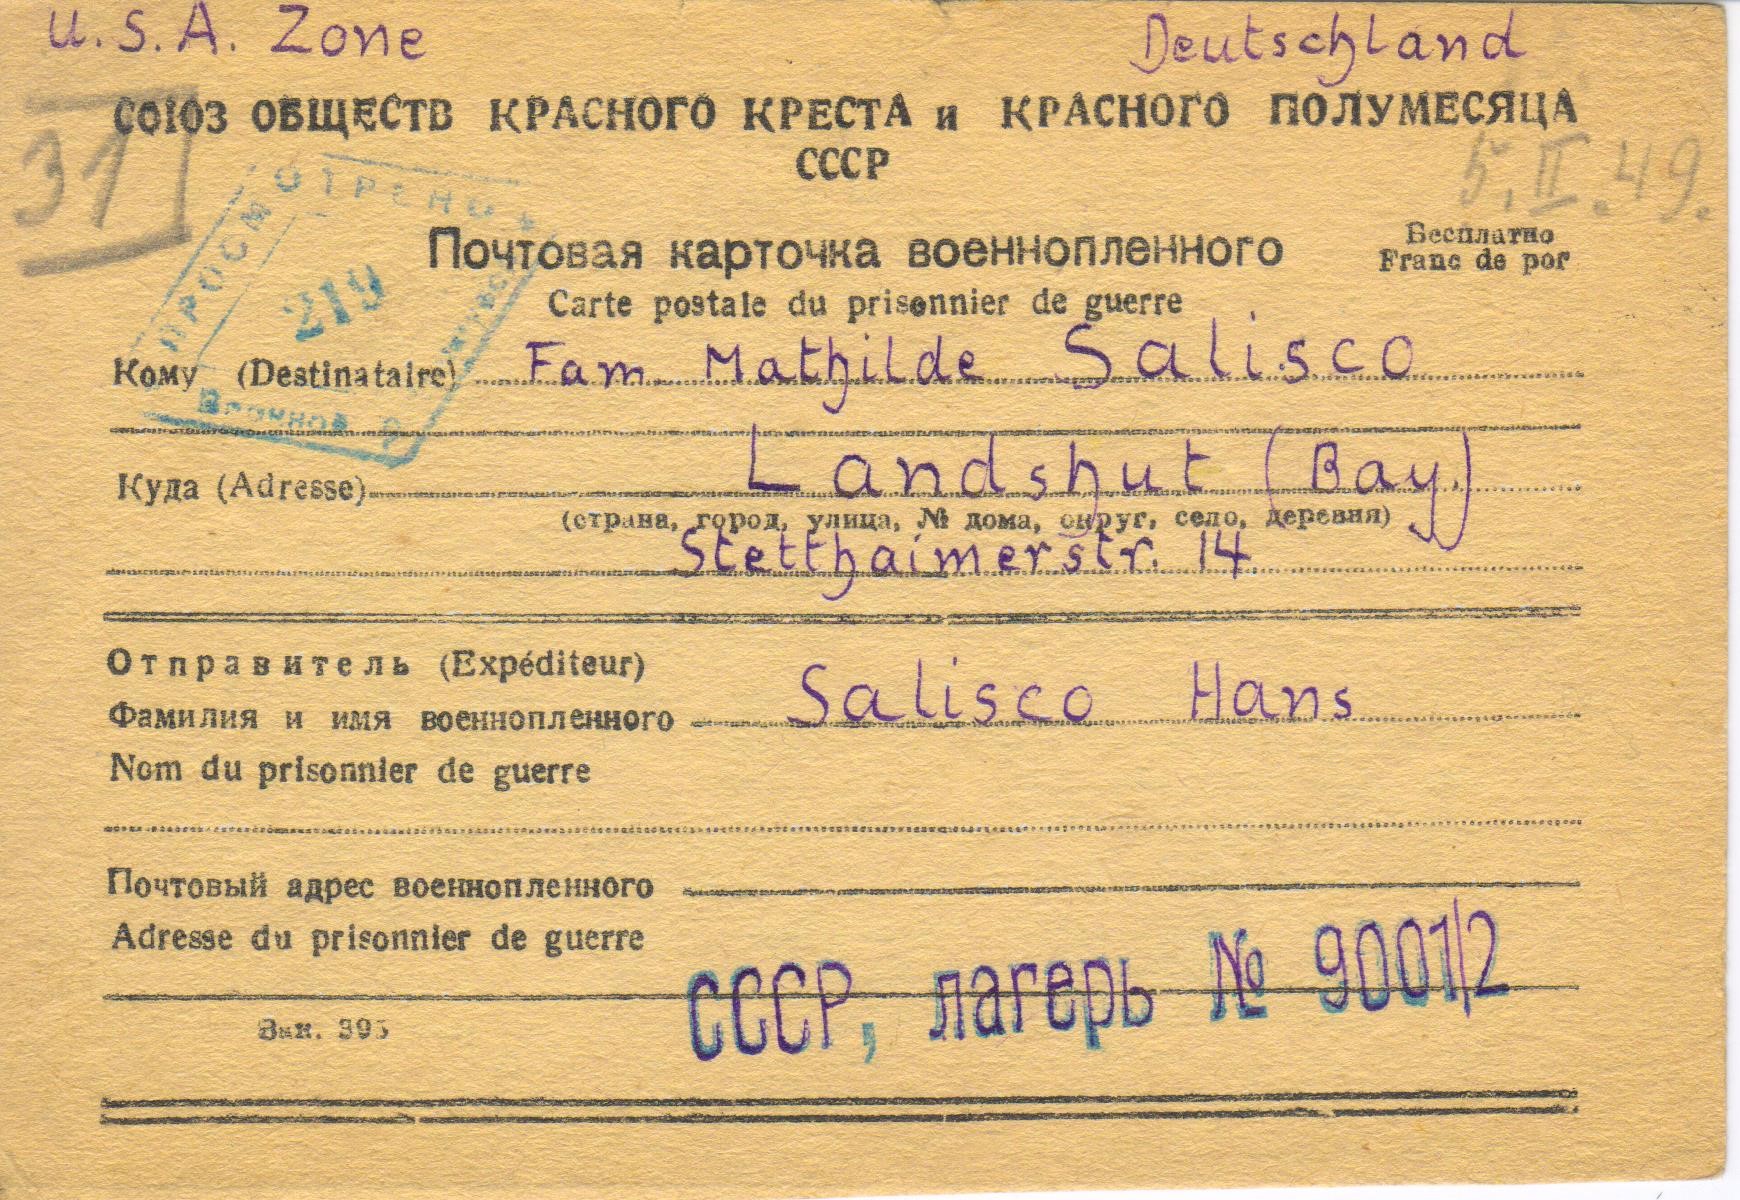 U.S.A. Zone Deutschland
СОЮЗ ОБЩЕСТВ КРАСНОГО КРЕСТА и КРАСНОГО ПОЛУМЕСЯЦА
СССР
31
5.II.49.
ПРОСМОТРЕНО
219
Почтовая карточка военнопленного
Бесплатно
Franc de por
Carte postale du prisonnier de guerre
Кому (Destinataire) Fam. Mathilde Salisco
Куда (Adresse) Landshut (Bay.)
(страна, город, улица, № дома, округ, село, деревня)
Stetthaimerstr. 14
Отправитель (Expéditeur)
Фамилия и имя военнопленного Salisco Hans
Nom du prisonnier de guerre
Почтовый адрес военнопленного
Adresse du prisonnier de guerre
СССР, лагерь № 9001/2
Зак. 395